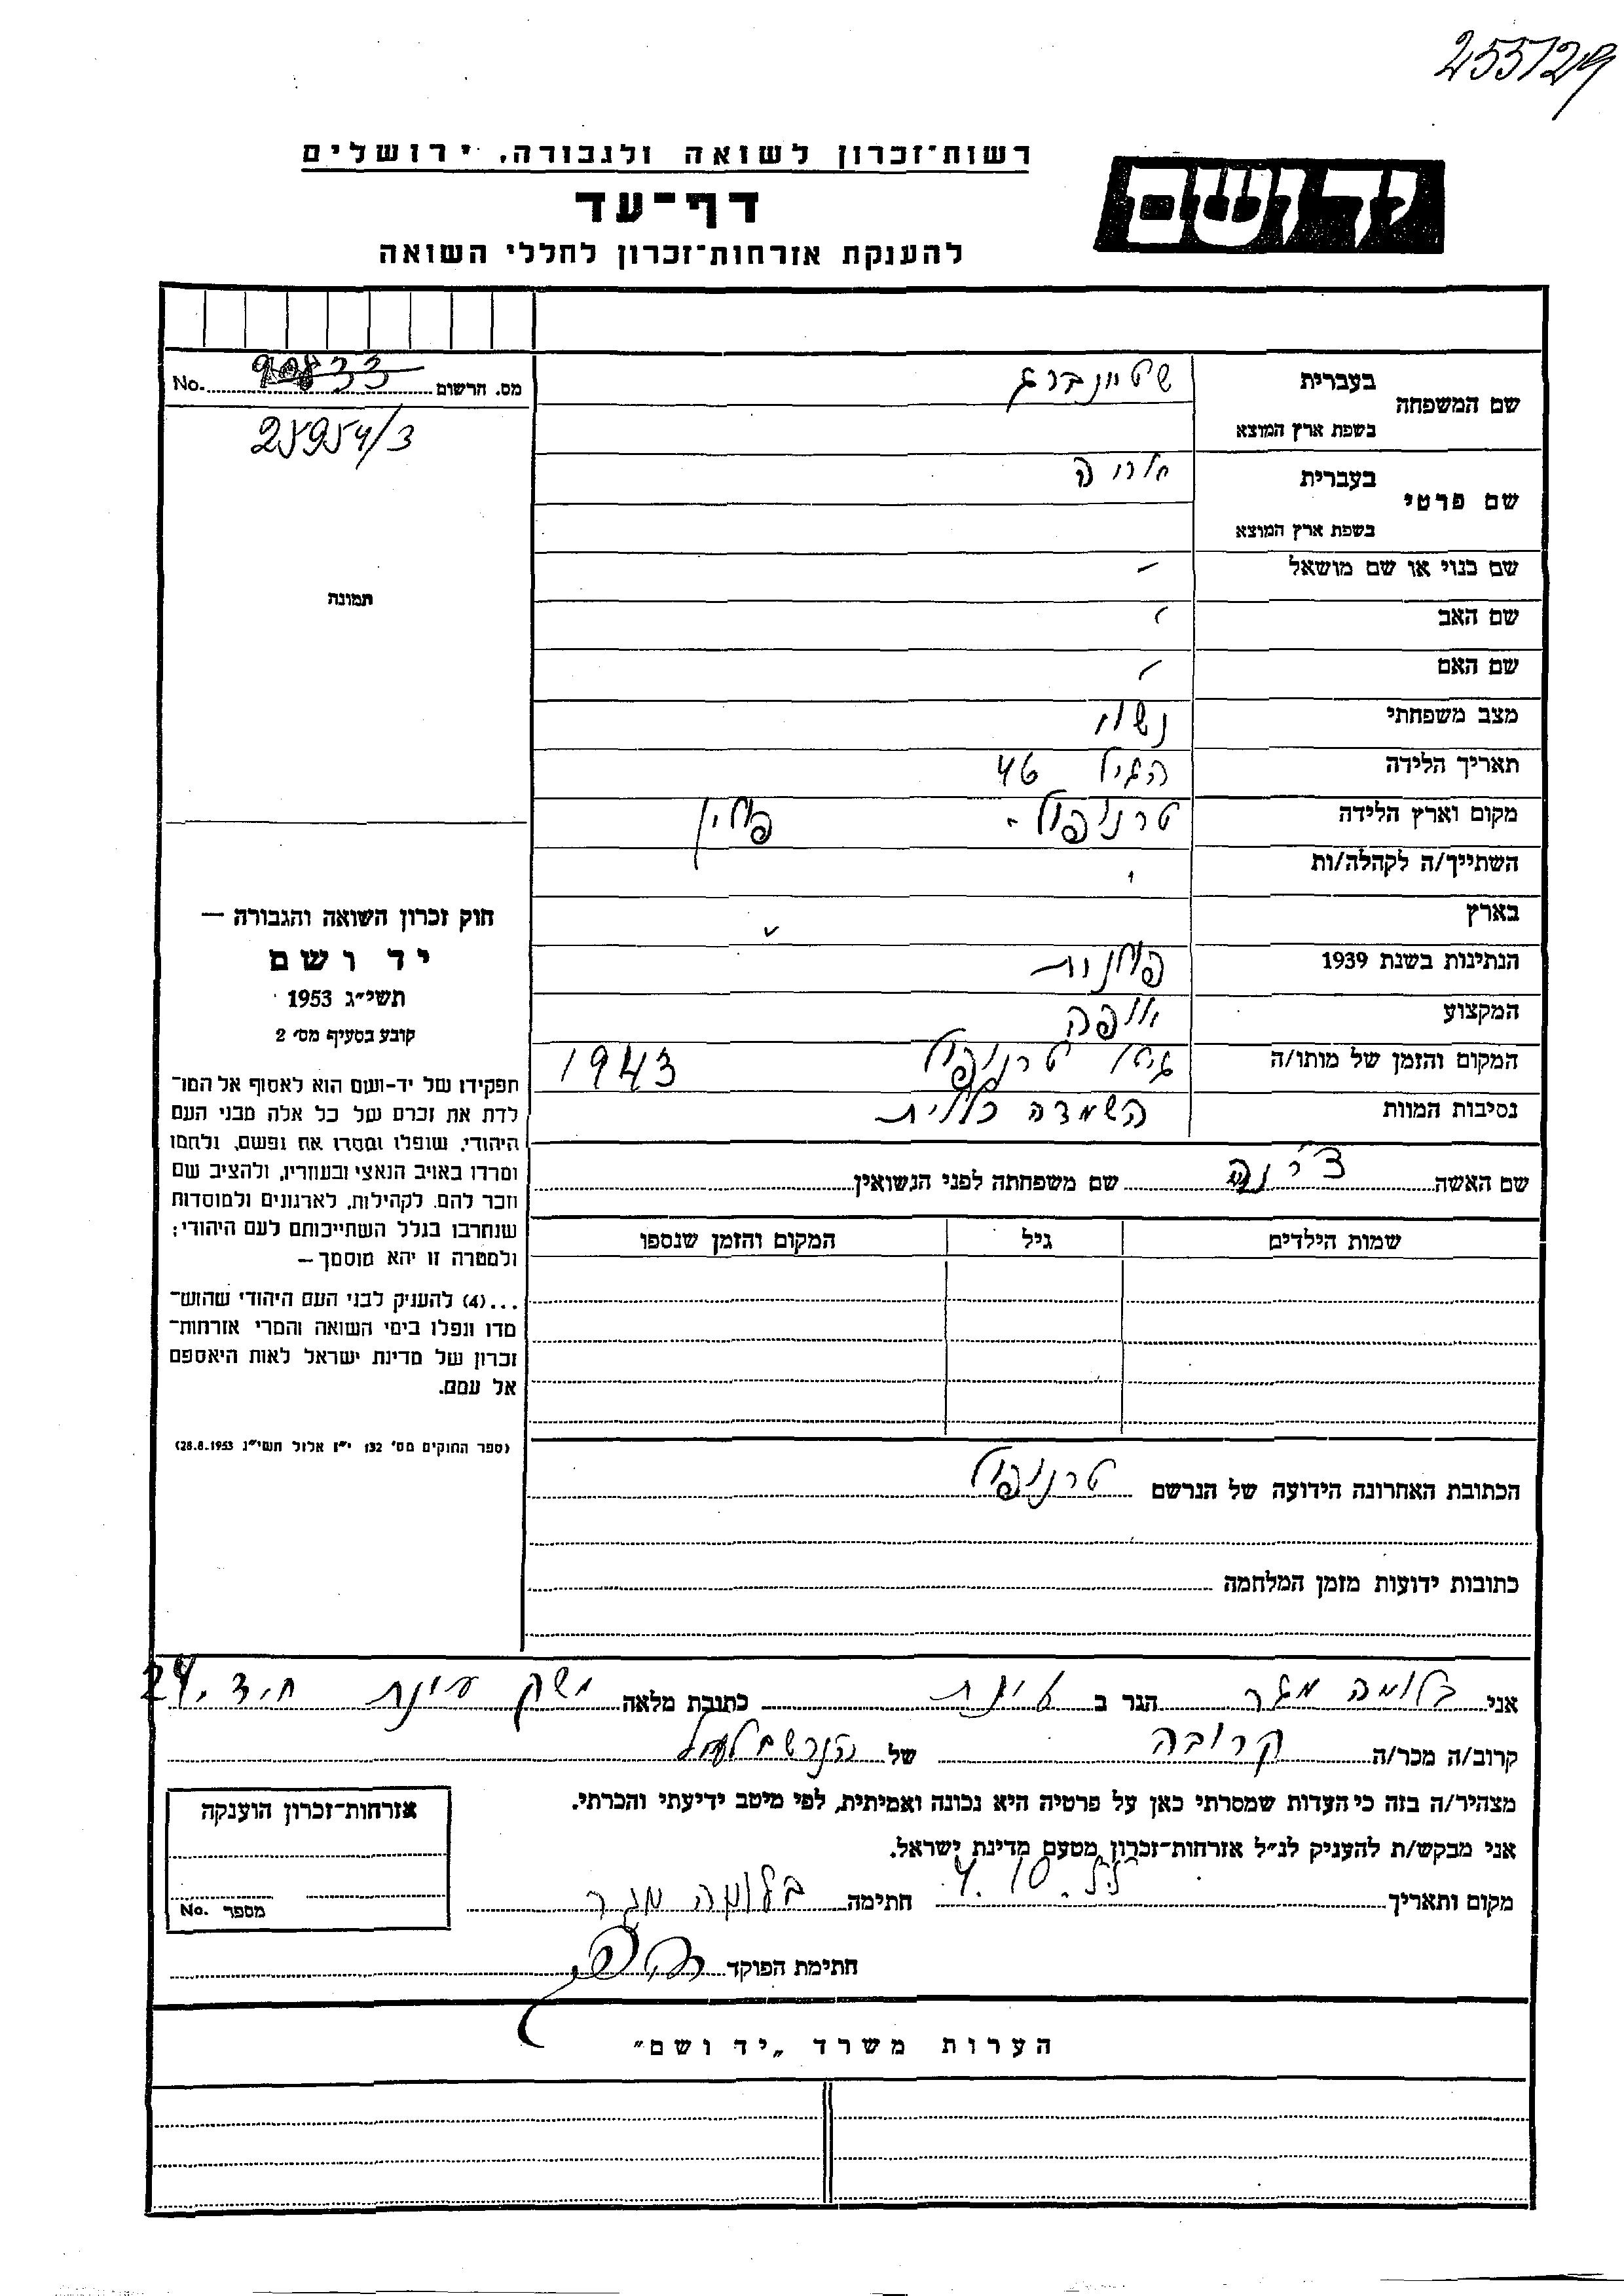 255129
רשות־זכרון לשואה ולגבורה, ירושלים
דף־עד
להענקת אזרחות־זכרון לחללי השואה
יד ושם
מס. הרשום 90833 No.
25954/3
תמונה
שם המשפחה בעברית שטיינברג
בשפת ארץ המוצא
שם פרטי בעברית
בשפת ארץ המוצא
שם כנוי או שם מושאל -
שם האב -
שם האם -
מצב משפחתי נשוי
תאריך הלידה הגיל 46
מקום וארץ הלידה טרנופול - פולין
השתייך/ה לקהלה/ות
בארץ
הנתינות בשנת 1939 פולנית
המקצוע אופה
המקום והזמן של מותו/ה גיטו טרנופול 1943
נסיבות המוות השמדה כללית
שם האשה שם משפחתה לפני הנשואין
שמות הילדים גיל המקום והזמן שנספו
חוק זכרון השואה והגבורה —
יד ושם
תשי״ג 1953
קובע בסעיף מס׳ 2
תפקידו של יד-ושם הוא לאסוף אל המו־
לדת את זכרם של כל אלה מבני העם
היהודי, שנפלו ומסרו את נפשם, נלחמו
ומרדו באויב הנאצי ובעוזריו, ולהציב שם
וזכר להם, לקהילות, לארגונים ולמוסדות
שנחרבו בגלל השתייכותם לעם היהודי;
ולמטרה זו יהא מוסמך —
...(4) להעניק לבני העם היהודי שהוש־
מדו ונפלו בימי השואה והמרי אזרחות־
זכרון של מדינת ישראל לאות היאספם
אל עמם.
(ספר החוקים מס׳ 132 י״ז אלול תשי״ג 28.8.1953)
הכתובת האחרונה הידועה של הנרשם טרנופול
כתובות ידועות מזמן המלחמה
אני בלומה מגר הגר ב עינת כתובת מלאה משק עינת ח.צ. 24
קרוב/ה מכר/ה קרובה של הנרשם לעיל
מצהיר/ה בזה כי העדות שמסרתי כאן על פרטיה היא נכונה ואמיתית, לפי מיטב ידיעתי והכרתי.
אני מבקש/ת להעניק לנ״ל אזרחות־זכרון מטעם מדינת ישראל.
מקום ותאריך 4.10.55 חתימה בלומה מגר
חתימת הפוקד
אזרחות־זכרון הוענקה
מספר No.
הערות משרד „יד ושם״